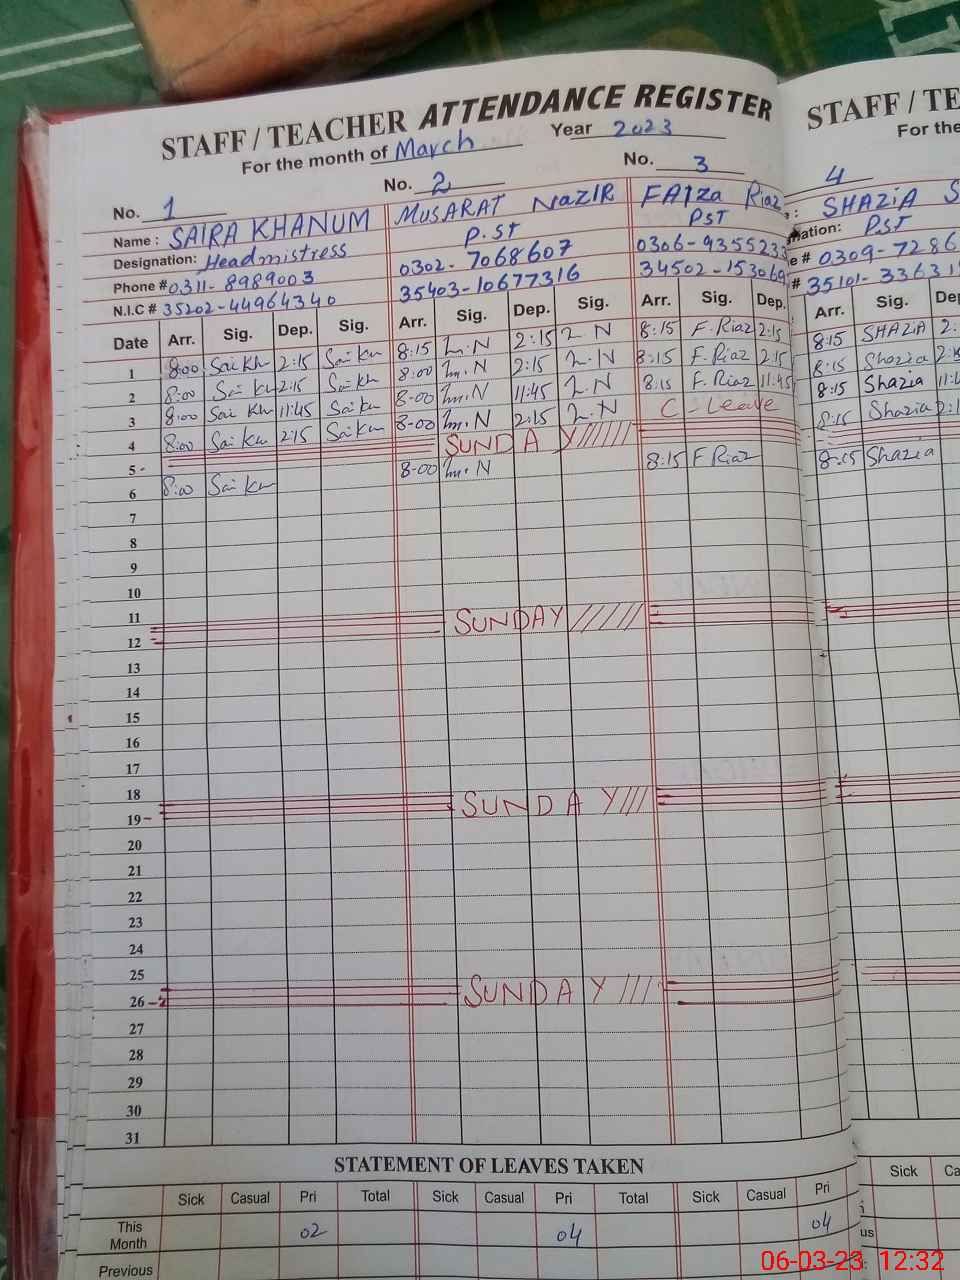 STAFF / TEACHER ATTENDANCE REGISTER
For the month of March Year 2023
No. 1 No. 2 No. 3
Name : SAIRA KHANUM MUSARAT NAZIR FAIZA Riaz
Designation: Headmistress P.ST PST
Phone # 0311-8989003 0302-7068607 0306-9355233
N.I.C # 35202-44964340 35403-10677316 34502-153069
Date Arr. Sig. Dep. Sig. Arr. Sig. Dep. Sig. Arr. Sig. Dep.
1 8:00 Sai Kh 2:15 Sai Kh 8:15 2:15 8:15 F.Riaz 2:15
2 8:00 Sai Kh 2:15 Sai Kh 8:00 2:15 8:15 F.Riaz 2:15
3 8:00 Sai Kh 11:45 Sai Kh 8-00 11:45 8:15 F.Riaz 11:45
4 8:00 Sai Kh 2:15 Sai Kh 8-00 2:15 C-Leave
5 - SUNDAY
6 8:00 Sai Kh 8-00 8:15 F Riaz
7
8
9
10
11
12 SUNDAY
13
14
15
16
17
18
19 - SUNDAY
20
21
22
23
24
25
26 - SUNDAY
27
28
29
30
31
STATEMENT OF LEAVES TAKEN
Sick Casual Pri Total Sick Casual Pri Total Sick Casual Pri
This Month 02 04 04
Previous
STAFF / TE
For the
4
: SHAZIA S
nation: PST
e # 0309-7286
# 35101-33631
Arr. Sig. Dep
8:15 SHAZIA 2:
8:15 Shazia 2:1
8:15 Shazia 11:4
8:15 Shazia 2:1
8:15 Shazia
Sick Ca
us
06-03-23 12:32